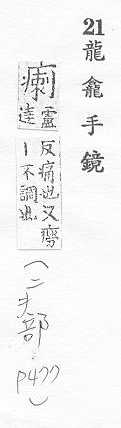 21龍龕手鏡
瘌盧達
反痛也又癆
丨不調也
部 P477)